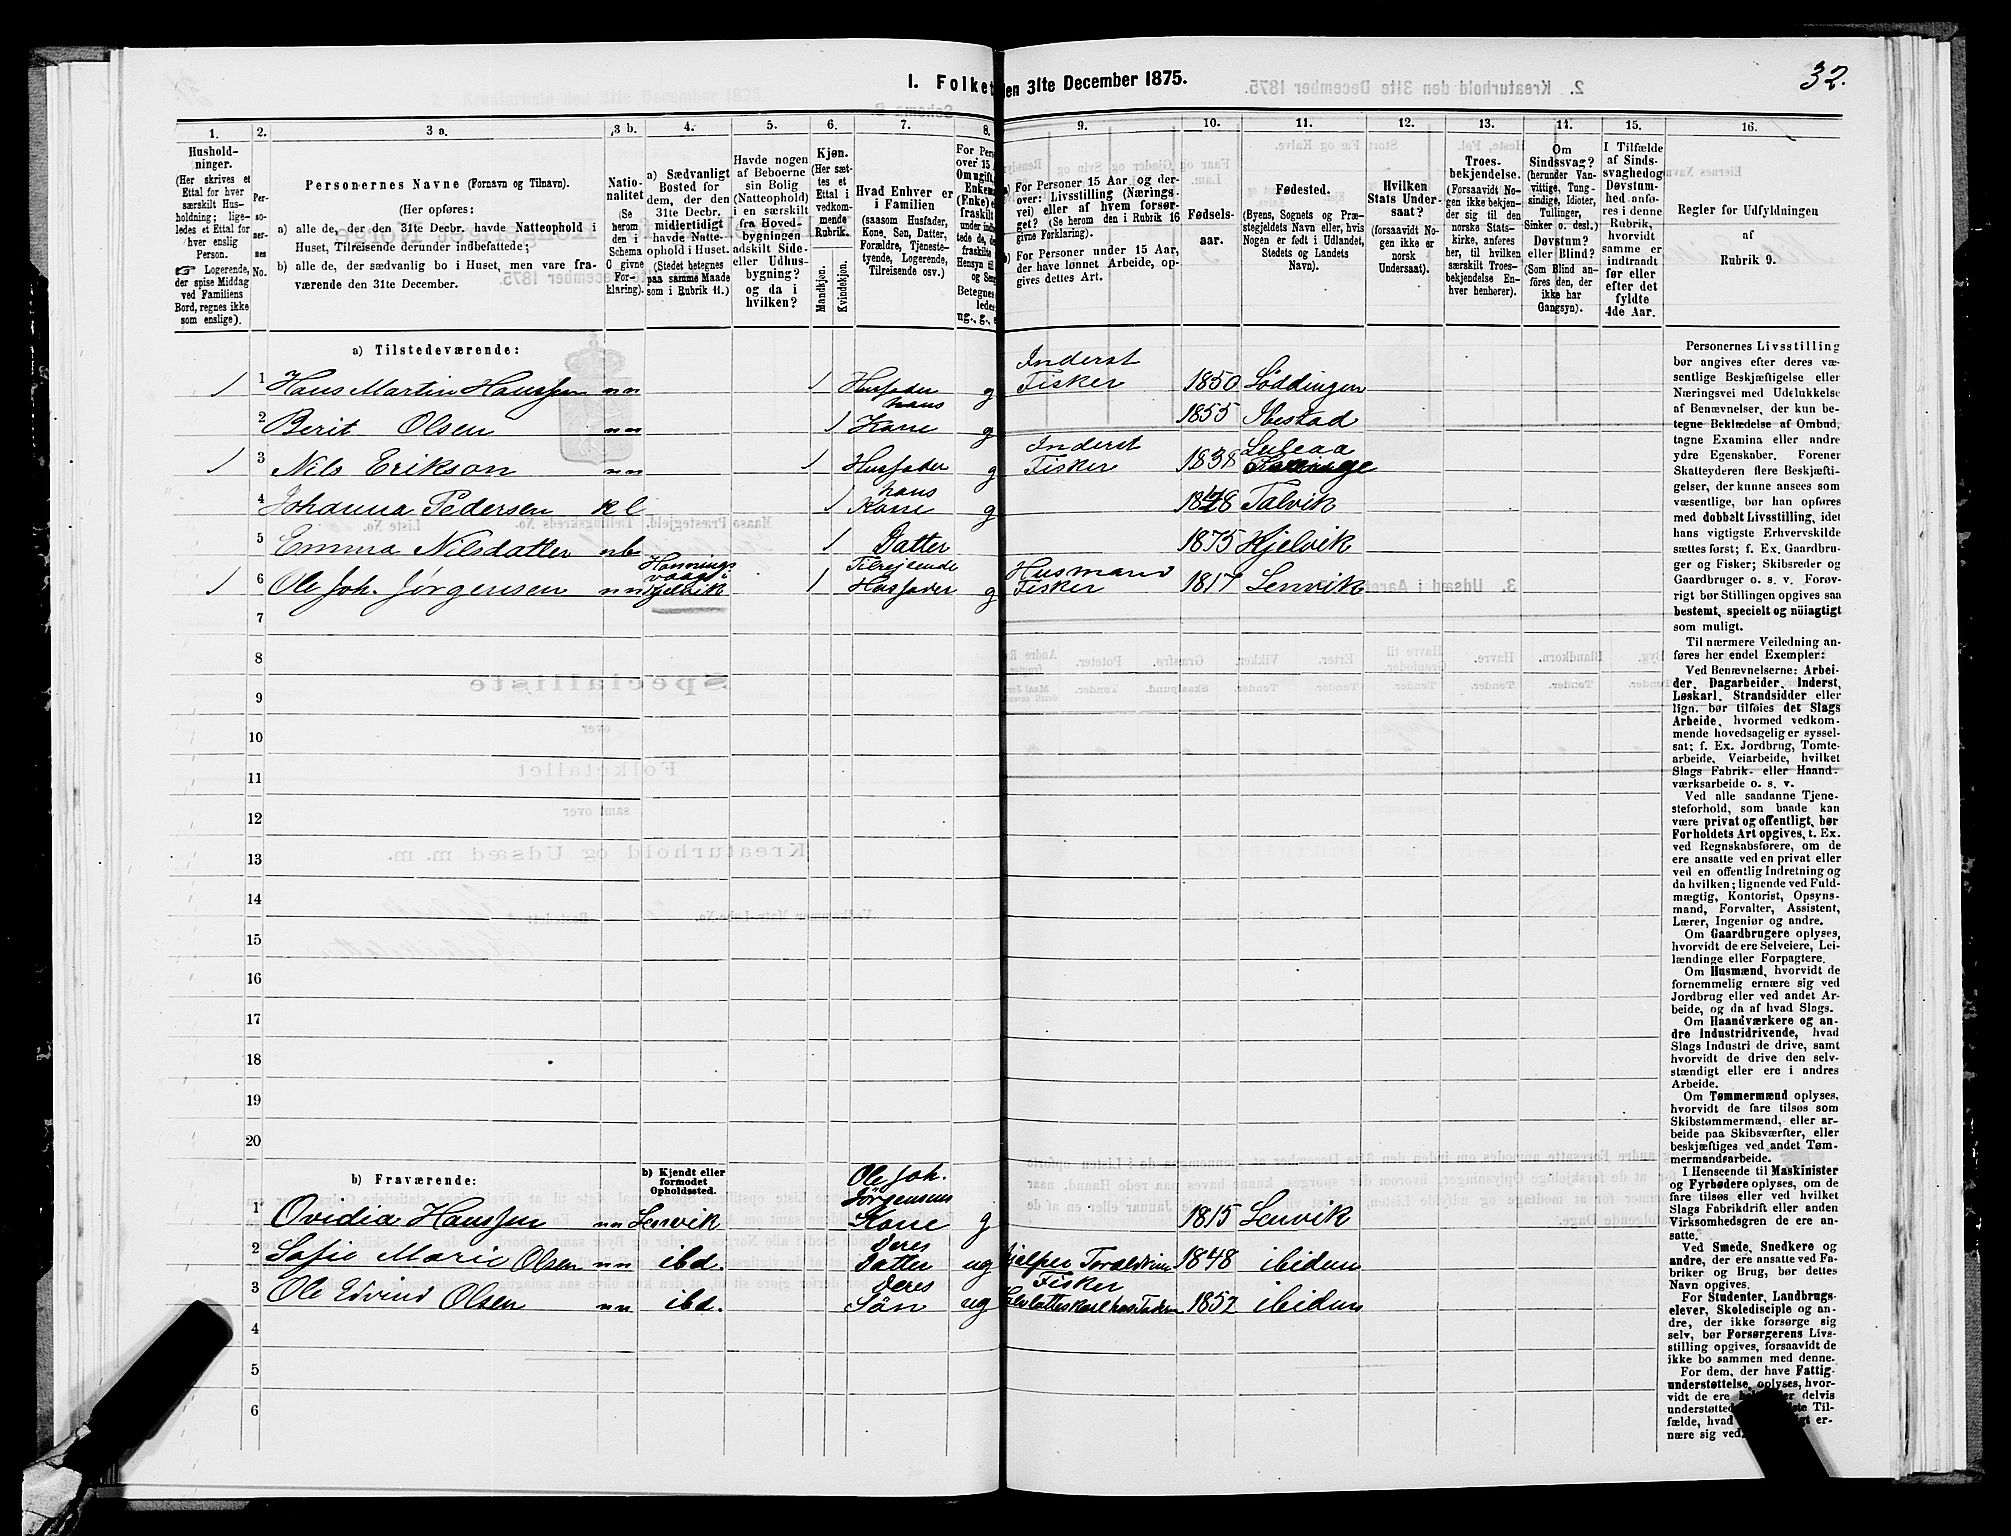 I. Folket
den 31te December 1875.
32.
1.
2.
3 a.
3 b.
4.
5.
6.
7.
8.
9.
10.
11.
12.
13.
14.
15.
16.
Hushold-
ninger.
(Her skrives et
Ettal for hver
særskilt Hus-
holdning; lige-
ledes et Ettal for
hver enslig
Person.
☞ Logerende,
der spise Middag
ved Familiens
Bord, regnes ikke
som enslige).
Per-
so-
ner-
nes
No.
Personernes Navne (Fornavn og Tilnavn).
(Her opføres:
a) alle de, der den 31te Decbr. havde Natteophold i
Huset, Tilreisende derunder indbefattede;
b) alle de, der sædvanlig bo i Huset, men vare fra-
værende den 31te December.
Natio-
nalitet
(Se
herom
den i
Schema
C givne
For-
klaring).
a) Sædvanligt
Bosted for
dem, der den
31te Decbr.
midlertidigt
havde Natte-
ophold i Huset.
(Stedet betegnes
paa samme Maade
som i Rubrik 11.)
Havde nogen
af Beboerne
sin Bolig
(Natteophold)
i en særskilt
fra Hoved-
bygningen
adskilt Side-
eller Udhus-
bygning?
og da i
hvilken?
Kjøn.
(Her sæt-
tes et
Ettal i
vedkom-
mende
Rubrik.
Mandkjøn.
Kvindekjøn.
Hvad Enhver er
i Familien
(saasom Husfader,
Kone, Søn, Datter,
Forældre, Tjeneste-
tyende, Logerende,
Tilreisende osv.)
For Pers
over 15
Om ugift,
Enkem
(Enke) e
fraskilt
Betegnes
ledes
ug., g., e
a) For Personer 15 Aar og der-
over: Livsstilling (Nærings-
vei) eller af hvem forsør-
get? (Se herom den i Rubrik 16
givne Forklaring).
b) For Personer under 15 Aar,
der have lønnet Arbeide, op-
gives dettes Art.
Fødsels-
aar.
Fødested.
(Byens, Sognets og Præ-
stegjeldets Navn eller, hvis
Nogen er født i Udlandet,
Stedets og Landets
Navn).
Hvilken
Stats Under-
saat?
(forsaavidt No-
gen ikke er
norsk
Undersaat).
Troes-
bekjendelse.
(Forsaavidt No-
gen ikke bekjen-
der sig til den
norske Stats-
kirke, anføres
her, til hvilken
særskilt Troes-
bekjendelse En-
hver henhører).
Om
Sindssvag?
(herunder Van-
vittige, Tung-
sindige, Idioter,
Tullinger,
Sinker o. desl.)
Døvstum?
eller Blind?
(Som Blind an-
føres den, der
ikke har
Gangsyn).
I Tilfælde
af Sinds-
svaghed og
Døvstum-
hed anfø-
res i denne
Rubrik,
hvorvidt
samme er
indtraadt
før eller
efter det
fyldte
4de Aar.
Regler for Udfyldningen
af
Rubrik 9.
a) Tilstedeværende:
1 1 Hans Martin Hanssen nn 1 Husfader g Inderst Fisker 1850 Løddingen
2 Berit Olsen nn 1 hans Kone g 1855 Ibestad
1 3 Nils Erikson nn 1 Husfader g Inderst Fisker 1838 Luleaa
4 Johanna Pedersen kl 1 hans Kone g 1848 Talvik
5 Emma Nilsdatter nb 1 Datter 1875 Kjelvik
1 6 Ole Joh. Jørgensen nn Honnings vaag i Kjelvik 1 Tilrejsende Husfader g Husmand Fisker 1817 Lenvik
7
8
9
10
11
12
13
14
15
16
17
18
19
20
b) Fraværende:
b) Kjendt eller
formodet
Opholdssted.
1 Ovidia Hanssen nn Lenvik Ole Joh. Jørgensens Kone g 1815 Lenvik
2 Sofie Marie Olsen nn ibd. Deres Datter ug hjelper Foræld 1848 ibidum
3 Ole Edvind Olsen nn ibd. Deres Søn ug Fisker 1852 ibidum
4
5
6
Personernes Livsstilling
bør angives efter deres væ-
sentlige Beskjæftigelse eller
Næringsvei med Udelukkelse
af Benævnelser, der kun be-
tegne Beklædelse af Ombud,
tagne Examina eller andre
ydre Egenskaber. Forener
Skatteyderen flere Beskjæfti-
gelser, der kunne ansees som
væsentlige, bør han opføres
med dobbelt Livsstilling, idet
hans vigtigste Erhvervskilde
sættes først; f. Ex. Gaardbru-
ger og Fisker; Skibsreder og
Gaardbruger o. s. v. Forøv-
rigt bør Stillingen opgives saa
bestemt, specielt og nöiagtigt
som muligt.
Til nærmere Veiledning an-
føres her endel Exempler:
Ved Benævnelserne: Arbei-
der, Dagarbeider, Inderst,
Løskarl, Strandsidder eller
lign. bør tilføies det Slags
Arbeide, hvormed vedkom-
mende hovedsagelig er syssel-
sat; f. Ex. Jordbrug, Tomte-
arbeide, Veiarbeide, hvilket
Slags Fabrik- eller Haand-
værksarbeide o. s. v.
Ved alle saadanne Tjene-
steforhold, som baade kan
være privat og offentligt, bør
Forholdets Art opgives, t. Ex.
ved Regnskabsførere, om de
ere ansatte ved en privat eller
ved en offentlig Indretning og
da hvilken; lignende ved Fuld-
mægtig, Kontorist, Opsyns-
mand, Forvalter, Assistent,
Lærer, Ingeniør og andre.
Om Gaardbrugere oplyses,
hvorvidt de ere Selveiere, Lei-
lændinge eller Forpagtere.
Om Husmænd, hvorvidt de
fornemmelig ernære sig ved
Jordbrug eller ved andet Ar-
beide, og da af hvad Slags.
Om Haandværkere og an-
dre Industridrivende, hvad
Slags Industri de drive, samt
hvorvidt de drive den selv-
stændigt eller ere i andres
Arbeide.
Om Tømmermænd oplyses,
hvorvidt de fare tilsøs som
Skibstømmermænd, eller ar-
beide paa Skibsværfter, eller
beskjæftiges ved andet Tøm-
mermandsarbeide.
I Henseende til Maskinister
og Fyrbødere oplyses, om de
fare tilsøs eller ved hvilket
Slags Fabrikdrift eller anden
Virksomhedsgren de ere an-
satte.
Ved Smede, Snedkere og
andre, der ere ansatte ved Fa-
briker og Brug, bør dettes
Navn opgives.
For Studenter, Landbrugs-
elever, Skoledisciple og an-
dre, der ikke forsørge sig
selv, bør Forsørgerens Livs-
stilling opgives, forsaavidt de
ikke bo sammen med denne.
For dem, der have Fattig-
understøttelse, oplyses, hvor-
vidt de ere delvis
understøttede Til-
fælde, hvad er-
nære sig ved.